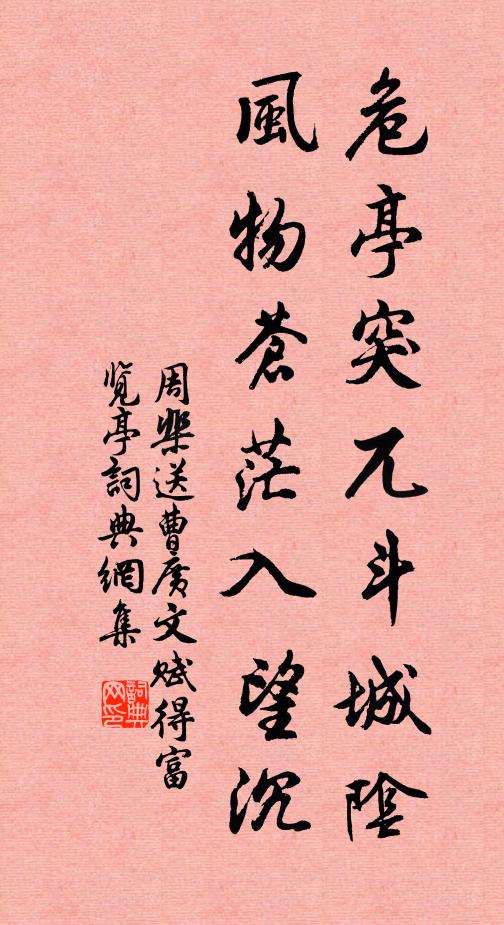 危亭突兀斗城陰
風物蒼茫入望沉
周棐送曹廣文賦得富
覽亭詞典網集
詞典网印